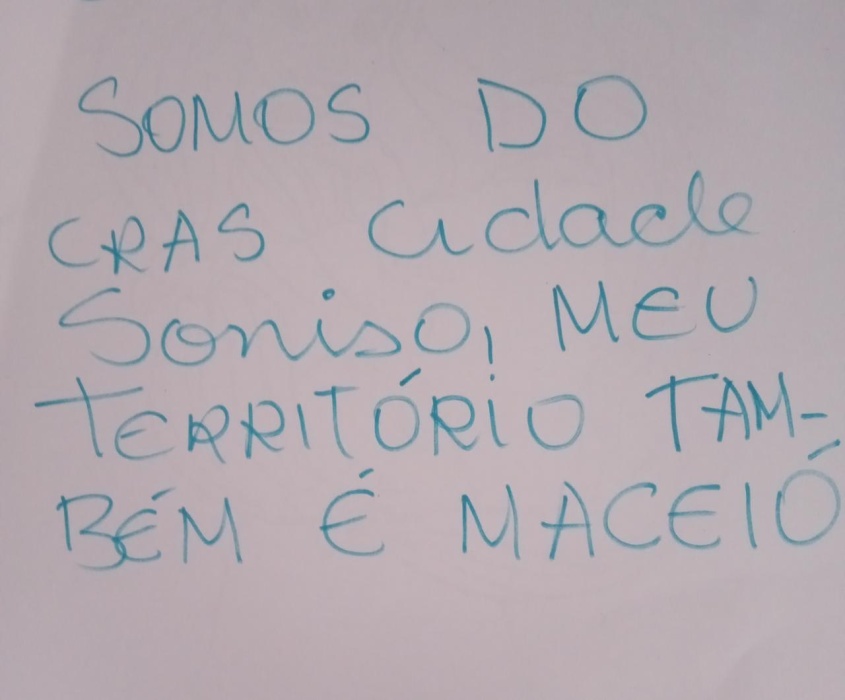 SOMOS DO
CRAS Cidade
Sorriso, MEU
TERRITÓRIO TAM-
BÉM É MACEIÓ